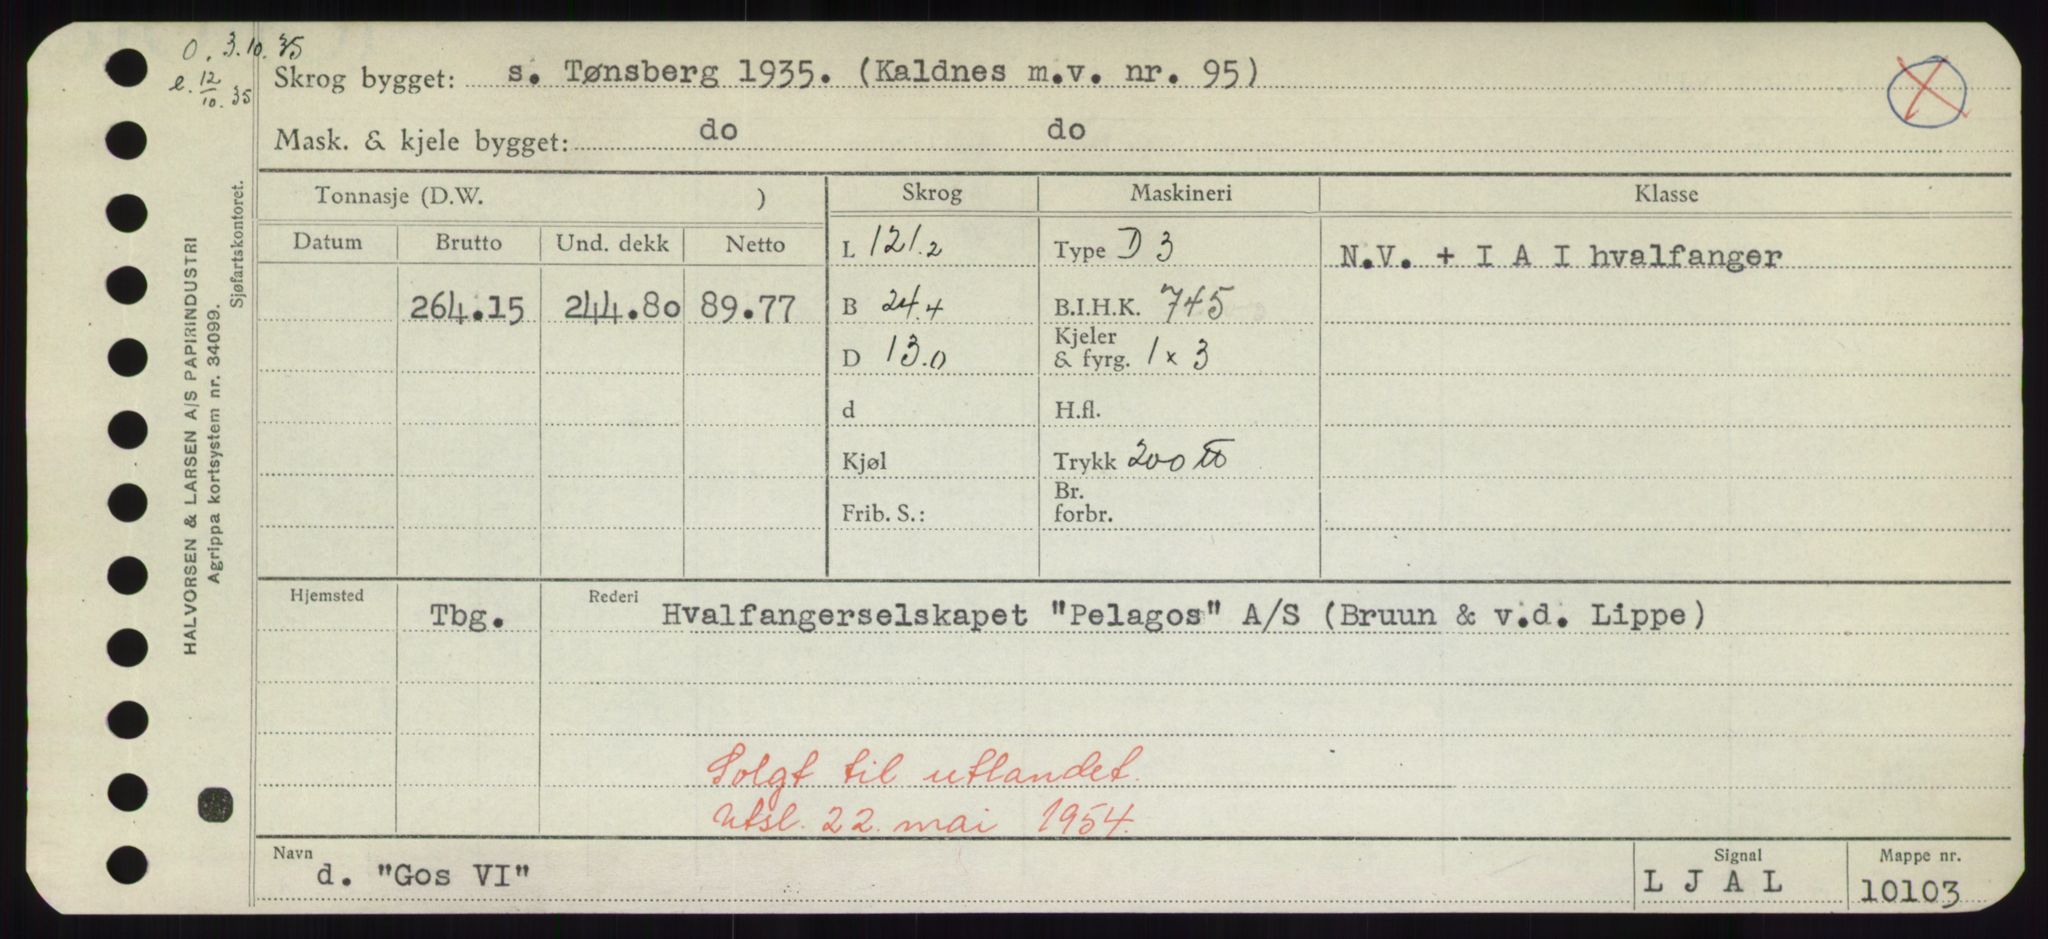 O. 3.10.35
l. 12/10. 35
Skrog bygget: s. Tønsberg 1935. (Kaldnes m.v. nr. 95)
Mask. & kjele bygget: do do
HALVORSEN & LARSEN A/S PAPIRINDUSTRI
Agrippa kortsystem nr. 34099.
Sjøfartskontoret.
Tonnasje (D.W. ) Skrog Maskineri Klasse
Datum Brutto Und. dekk Netto L 121.2 Type D 3 N.V. + I A I hvalfanger
264.15 244.80 89.77 B 24.4 B.I.H.K. 745
D 13.0 Kjeler & fyrg. 1 x 3
d H.fl.
Kjøl Trykk 200 ℔
Frib. S.: Br. forbr.
Hjemsted Tbg. Rederi Hvalfangerselskapet "Pelagos" A/S (Bruun & v.d. Lippe)
Solgt til utlandet.
Utsl. 22. mai 1954.
Navn d. "Gos VI" Signal L J A L Mappe nr. 10103